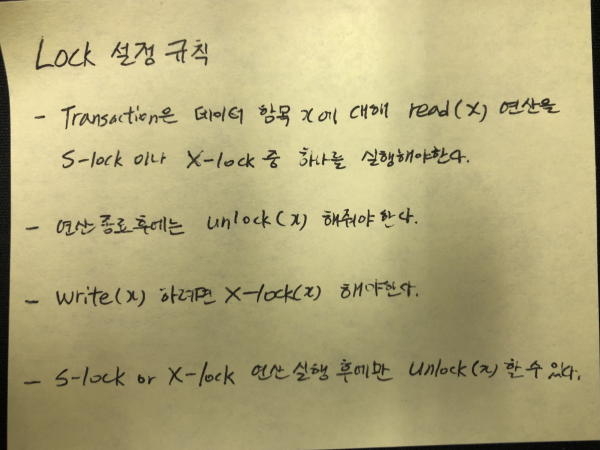 Lock 설정 규칙
- Transaction은 데이터 항목 x에 대해 read(x) 연산을
S-lock 이나 X-lock 중 하나를 실행해야한다.
- 연산 종료 후에는 unlock(x) 해줘야 한다.
- write(x) 하려면 X-lock(x) 해야한다.
- S-lock or X-lock 연산 실행 후에만 unlock(x) 할 수 있다.